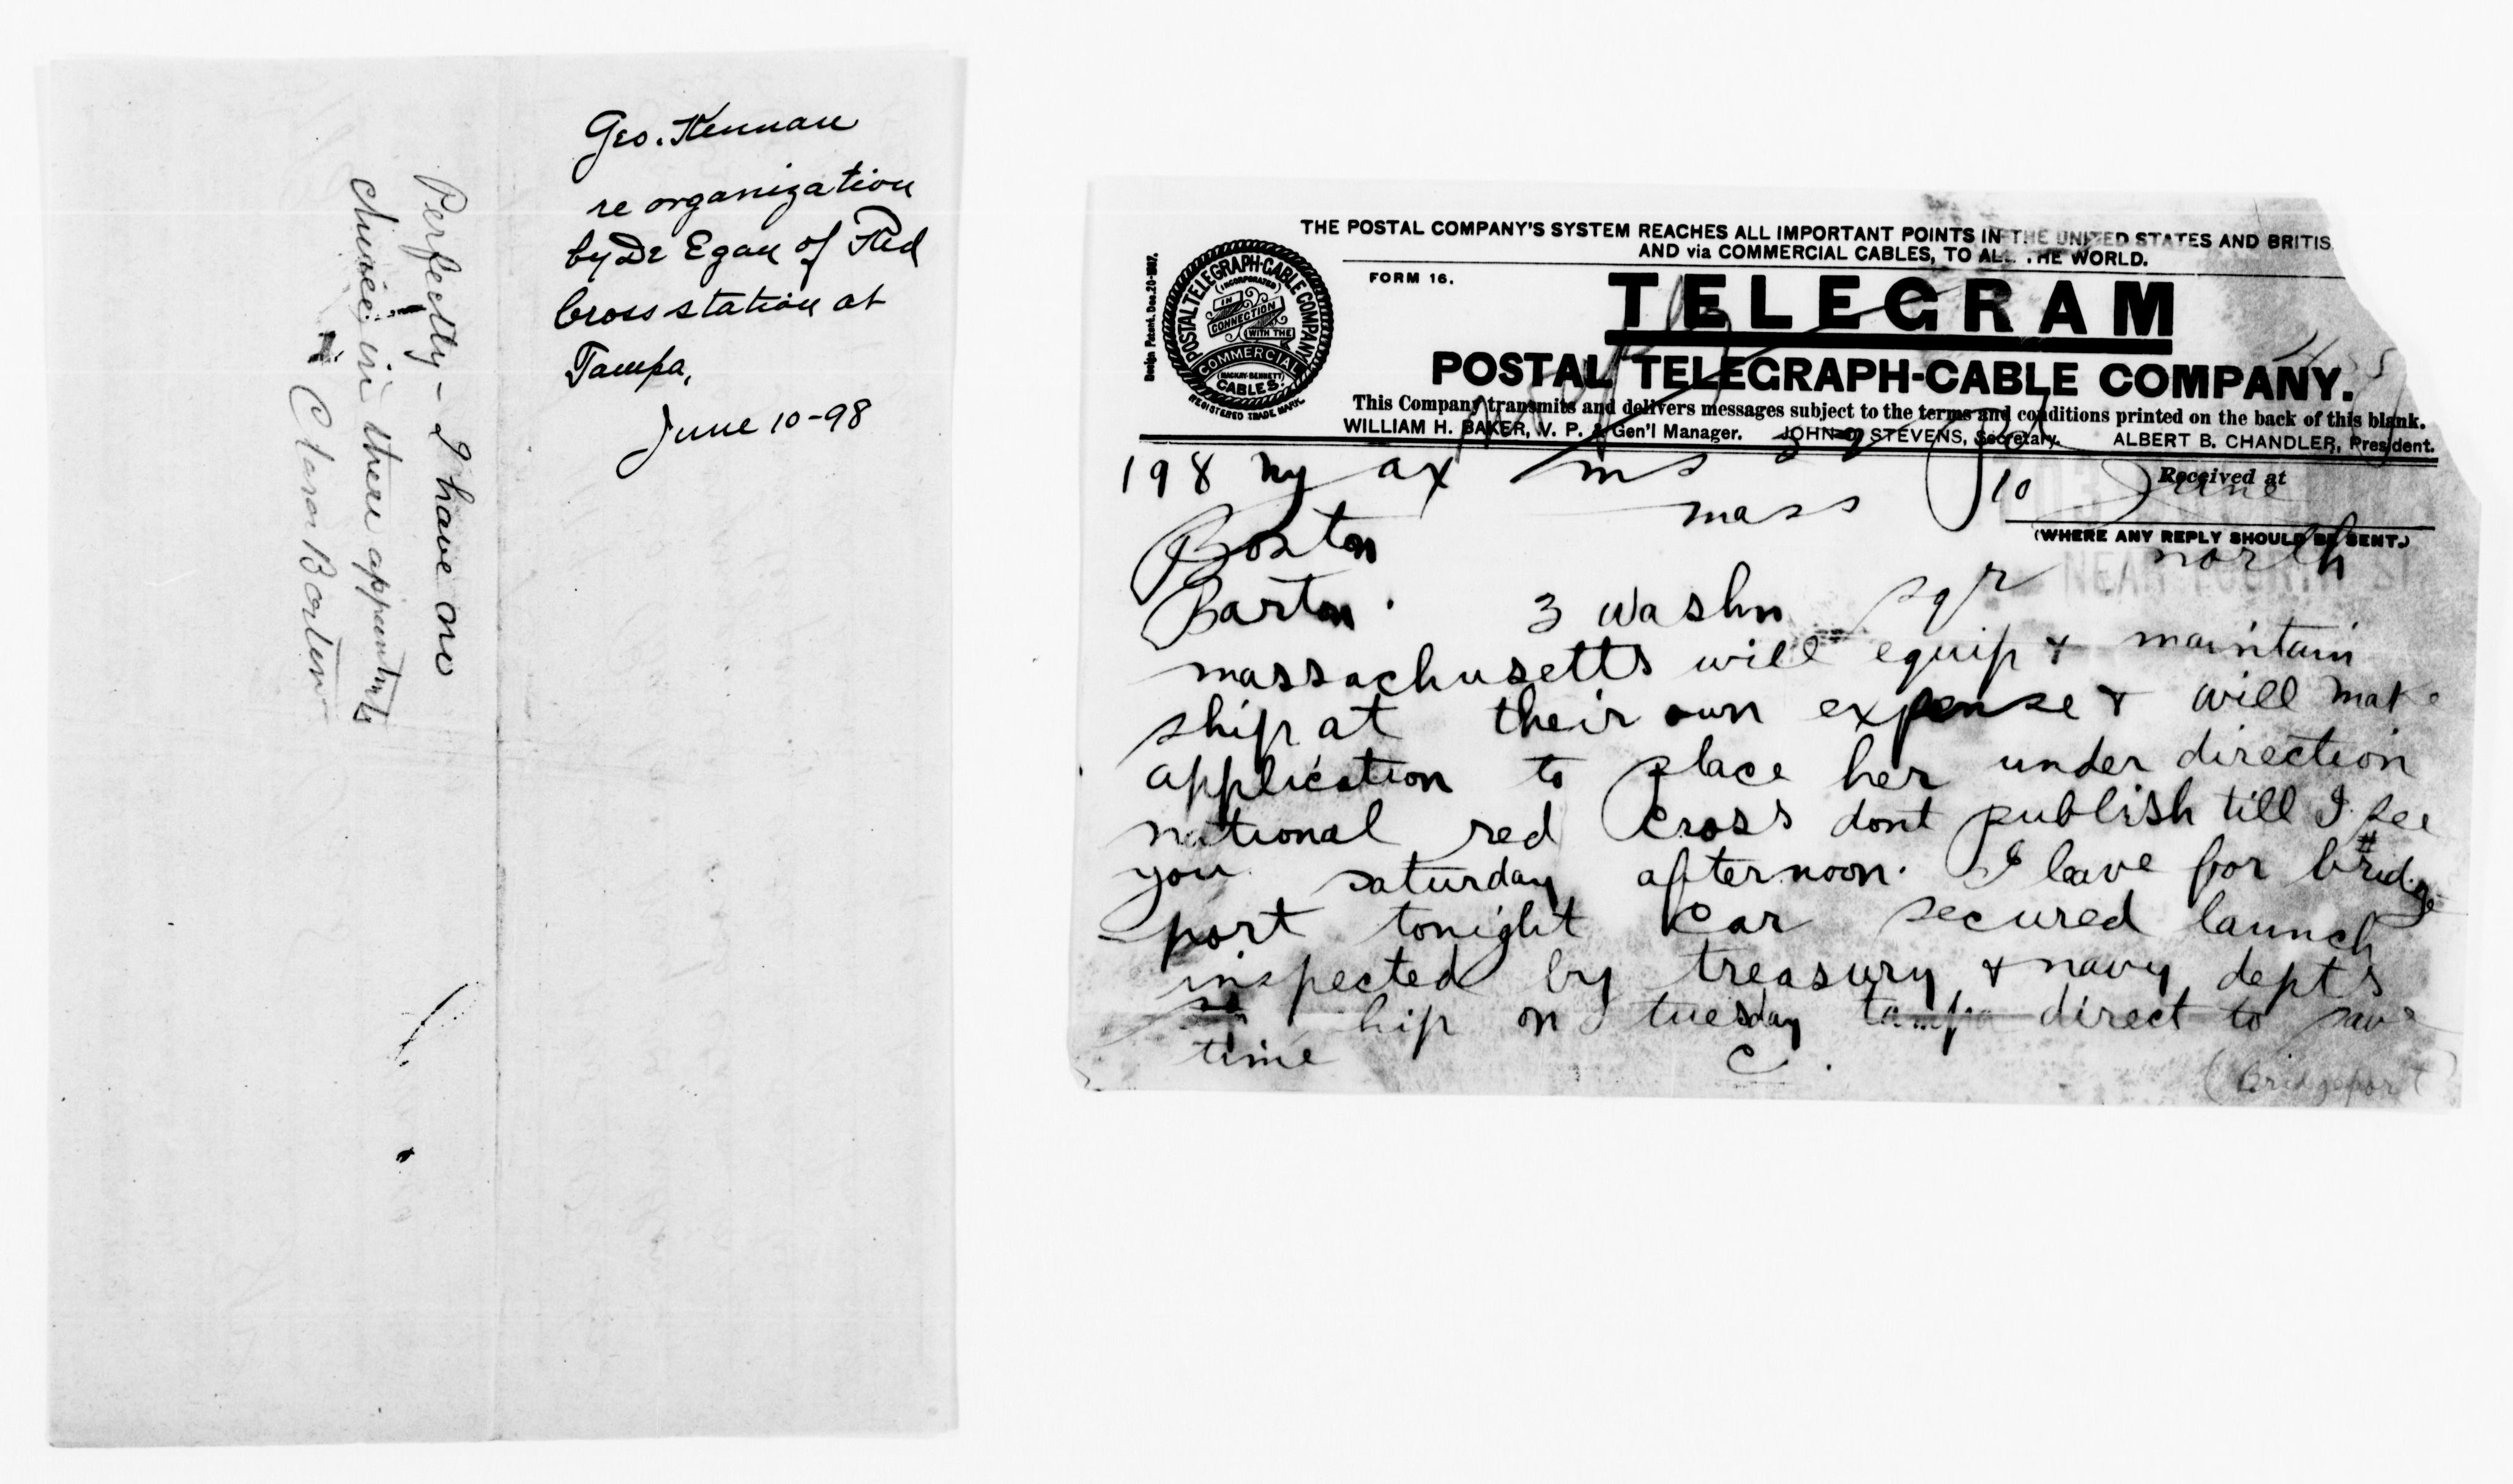 Geo. Kennan
re organization
by Dr Egan of Red
Cross station at
Tampa,
June 10-98
Perfectly - I have no
choice in these appointmts
Clara Barton
THE POSTAL COMPANY'S SYSTEM REACHES ALL IMPORTANT POINTS IN THE UNITED STATES AND BRITIS
AND via COMMERCIAL CABLES, TO ALL THE WORLD.
Design Patent. Dec. 20-1887.
POSTAL TELEGRAPH-CABLE COMPANY
(INCORPORATED)
IN
CONNECTION
WITH THE
COMMERCIAL
(MACKAY-BENNETT)
CABLES.
REGISTERED TRADE MARK.
FORM 16.
TELEGRAM
POSTAL TELEGRAPH-CABLE COMPANY.
This Company transmits and delivers messages subject to the terms and conditions printed on the back of this blank.
WILLIAM H. BAKER, V. P. & Gen'l Manager. JOHN O. STEVENS, Secretary. ALBERT B. CHANDLER, President.
Received at
198 ny ax ms 39 Pd
Boston mass 10 June
(WHERE ANY REPLY SHOULD BE SENT.)
NEAR FOURTH ST
Barton. 3 Washn sqr north
massachusetts will equip & maintain
ship at their own expense & will make
application to place her under direction
national red cross dont publish till I see
you saturday afternoon. I leave for bridge
port tonight car secured launch
inspected by treasury & navy depts
ship on tuesday tampa direct to save
time C.
(Bridgeport)